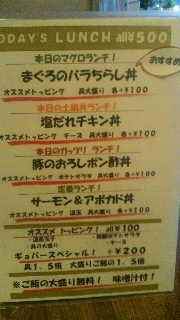 TODAY'S LUNCH all¥500
おすすめ
本日のマグロランチ!
まぐろのバラちらし丼
オススメトッピング 具大盛り 各+¥100
本日の土鍋丼ランチ!
塩だれチキン丼
オススメトッピング チーズ 具大盛り 各+¥100
本日のガッツリ ランチ!
豚のおろしポン酢丼
オススメトッピング ポテトサラダ 具大盛り 各+¥100
定番ランチ!
サーモン&アボカド丼
オススメトッピング 温玉 具大盛り 各+¥100
オススメ トッピング! all¥100
・温泉玉子
ポテトサラダ
・具の大盛り
・チーズ
ギョバースペシャル! +¥200
具1.5倍 大盛りご飯の1.5倍
※ご飯の大盛り無料! 味噌汁付!